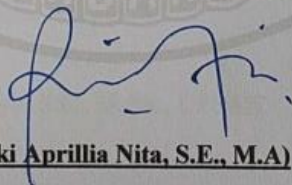 ki Aprillia Nita, S.E., M.A)